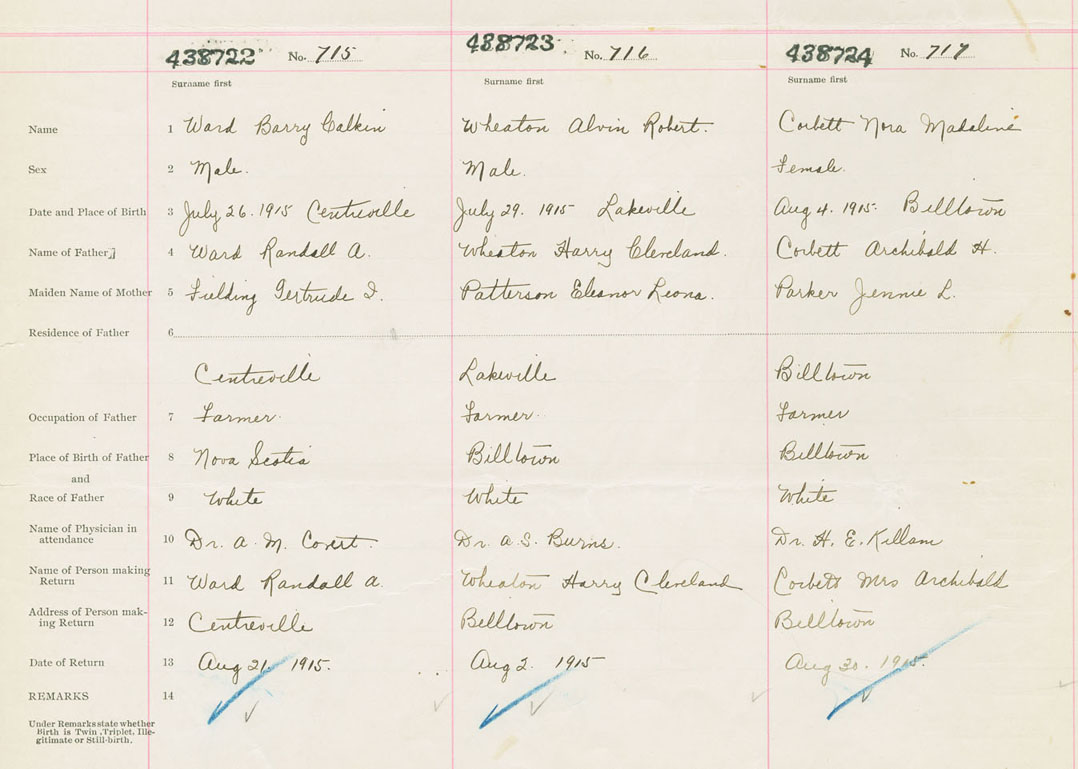 438722 No. 715 438723 No. 716 438724 No. 717
Surname first Surname first Surname first
Name 1 Ward Barry Calkin Wheaton Alvin Robert. Corbett Nora Madaline
Sex 2 Male. Male. Female.
Date and Place of Birth 3 July 26. 1915 Centreville July 29. 1915 Lakeville Aug 4. 1915. Billtown
Name of Father 4 Ward Randall A. Wheaton Harry Cleveland. Corbett Archibald H.
Maiden Name of Mother 5 Fielding Gertrude I. Patterson Eleanor Leona. Parker Jennie L.
Residence of Father 6
Centreville Lakeville Billtown
Occupation of Father 7 Farmer. Farmer. Farmer
Place of Birth of Father 8 Nova Scotia Billtown Billtown
and
Race of Father 9 White White White
Name of Physician in
attendance 10 Dr. A. M. Covert. Dr. A. S. Burns. Dr. H. E. Killam
Name of Person making
Return 11 Ward Randall A. Wheaton Harry Cleveland Corbett Mrs Archibald
Address of Person mak-
ing Return 12 Centreville Billtown Billtown
Date of Return 13 Aug 21. 1915. Aug 2. 1915 Aug 30. 1915.
REMARKS 14
Under Remarks state whether
Birth is Twin, Triplet, Ille-
gitimate or Still-birth.